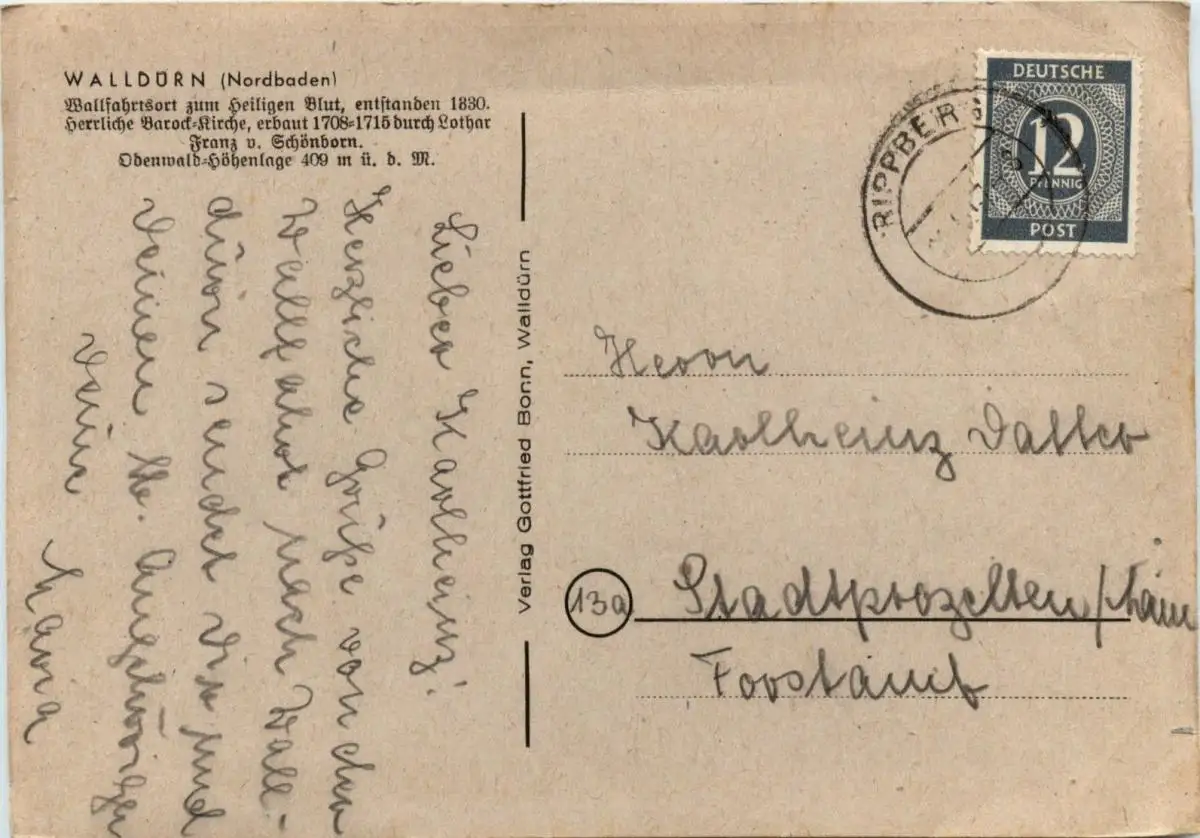 WALLDÜRN (Nordbaden)
Wallfahrtsort zum Heiligen Blut, entstanden 1330.
Herrliche Barock-Kirche, erbaut 1708-1715 durch Lothar
Franz v. Schönborn.
Odenwald-Höhenlage 409 m ü. d. M.
Lieber Karlheinz!
Herzliche Grüße von der
Wallfahrt nach Wall-
dürn sendet Dir und
Deinen lb. Angehörigen
Deine
Verlag Gottfried Bonn, Walldürn
RIPPBERG
DEUTSCHE
12
PFENNIG
POST
Herrn
Karlheinz
13a Stadtprozelten/Main
Forstamt